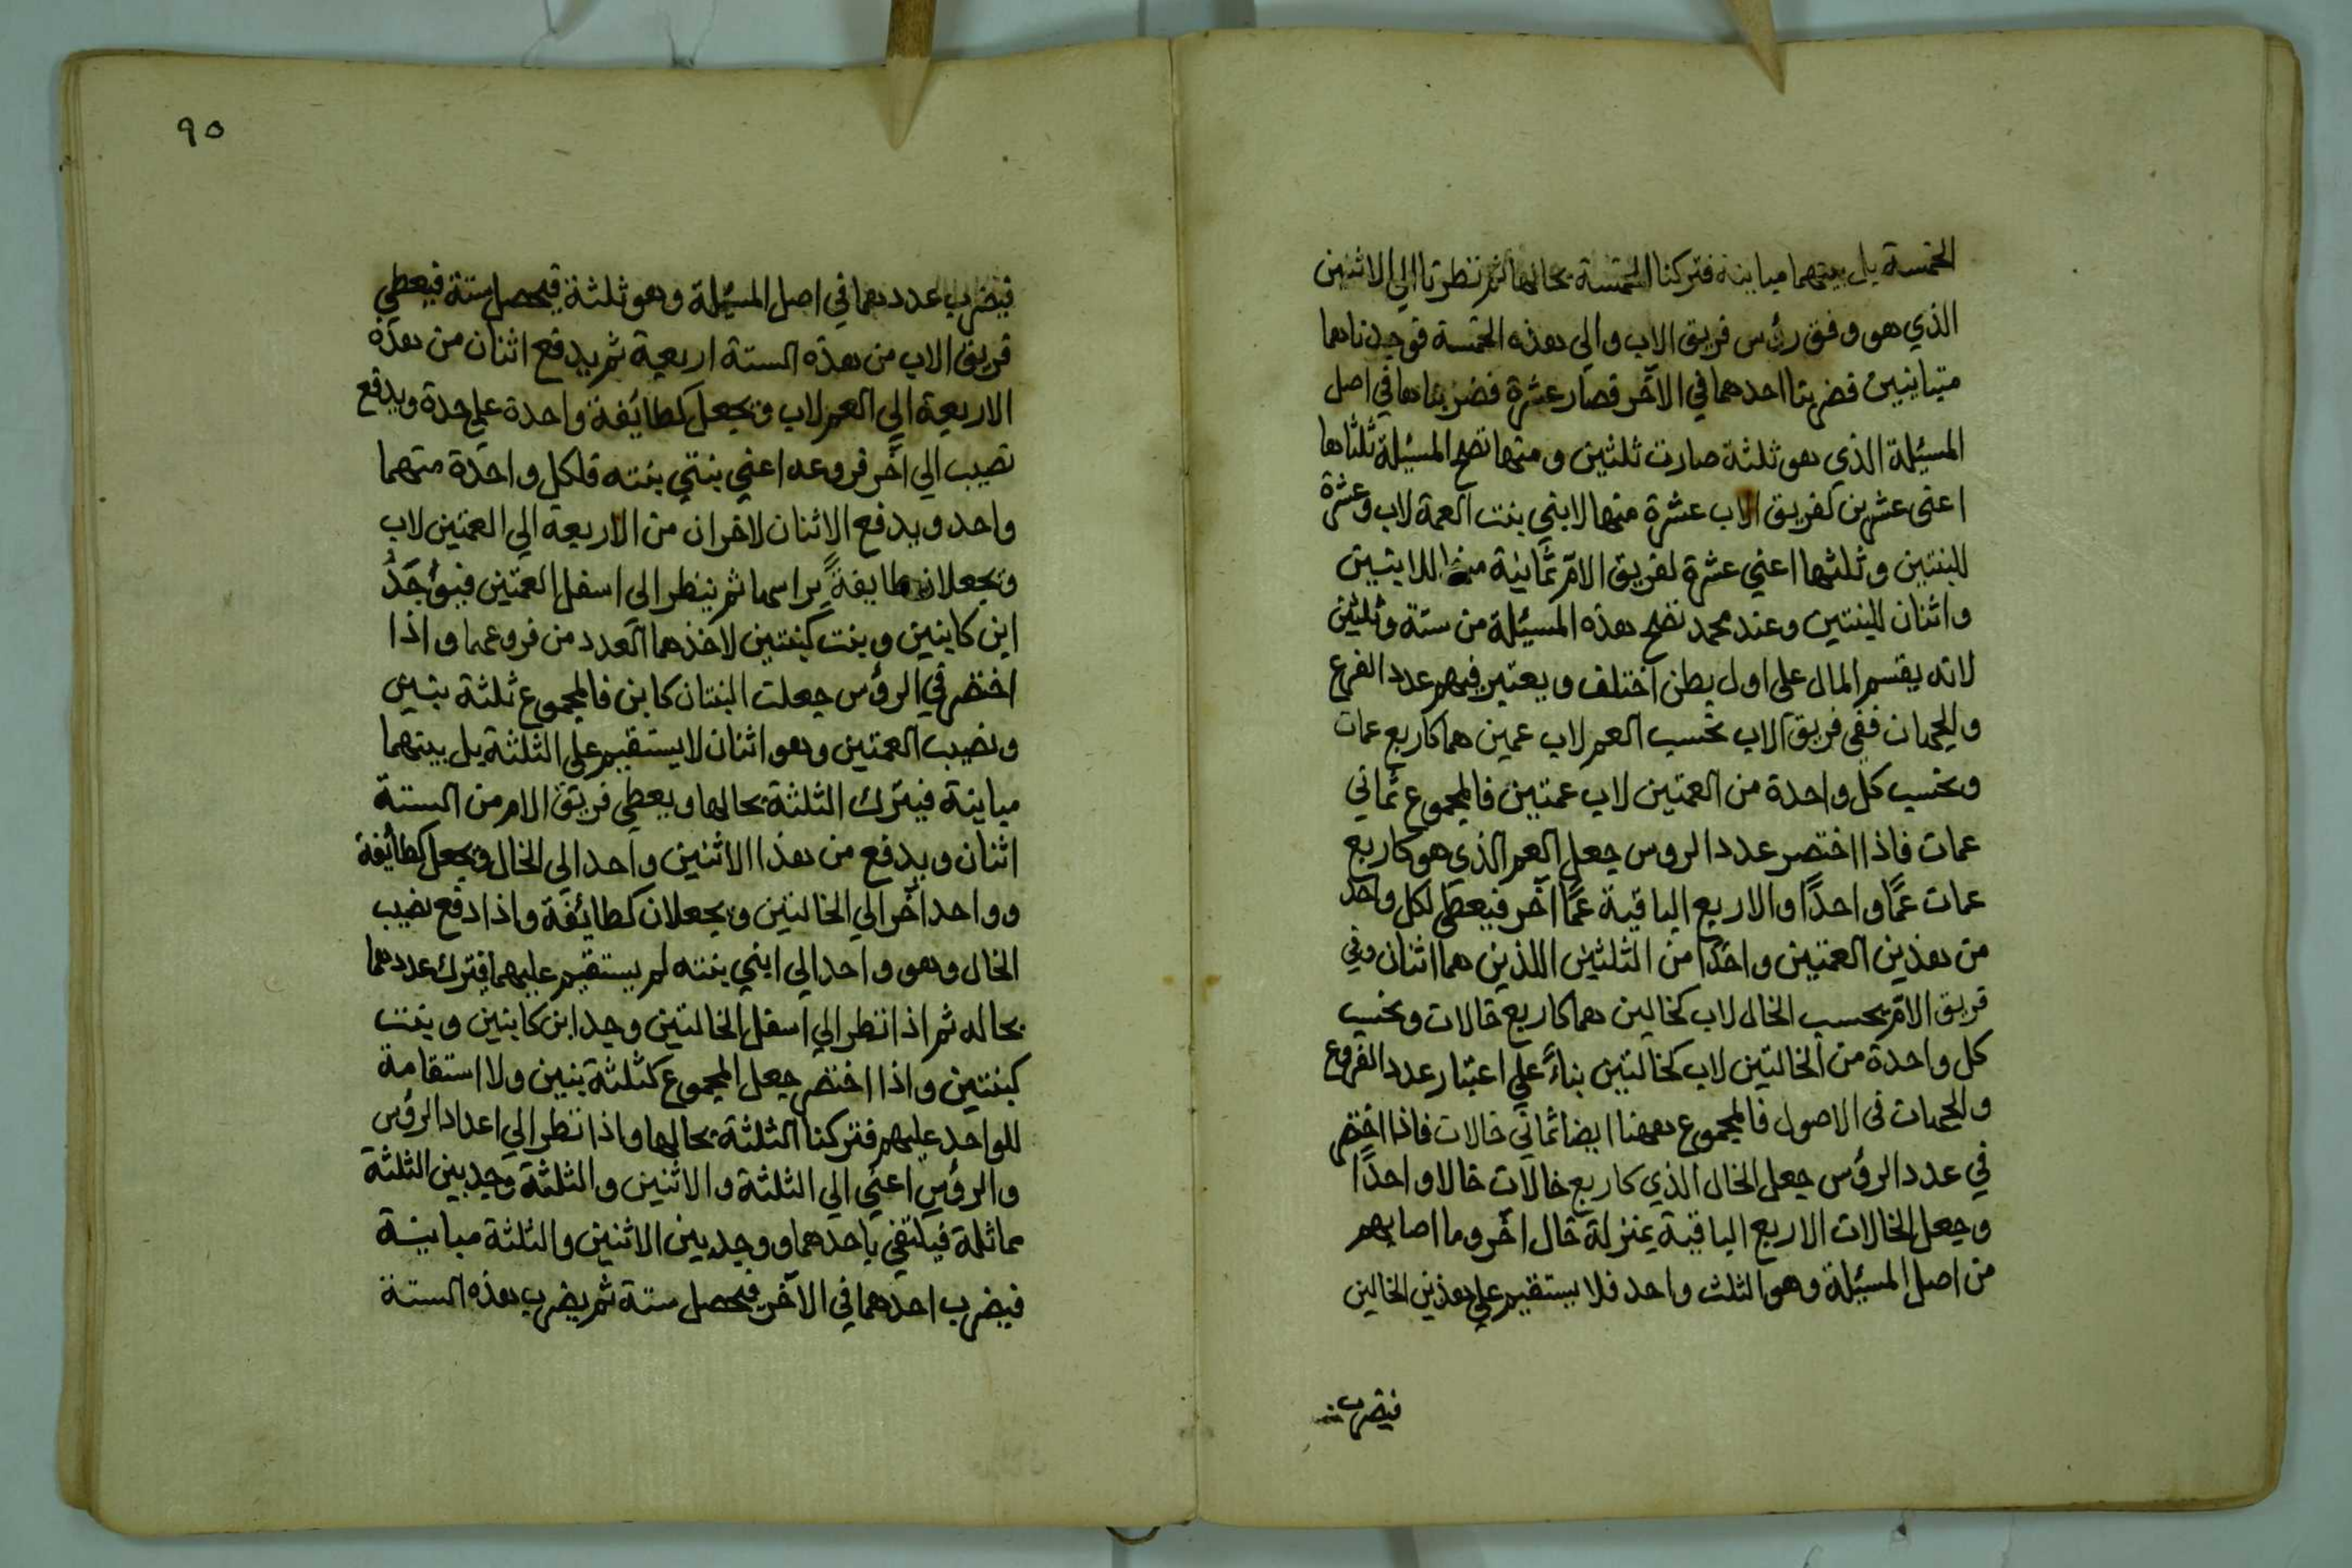 الخمسة بل بينهما مباينة فتركنا الخمسة بحالها ثم نظرنا الي الاثنين
الذي هو وفق رؤس فريق الاب والي هذه الخمسة فوجدناهما
متباينين فضربنا احدهما في الآخر فصار عشرة فضربناها في اصل
المسئلة الذي هو ثلثة صارت ثلثين ومنها تصح المسئلة ثلثاها
اعني عشرين لفريق الاب عشرة منها لابني بنت العمة لاب وعشرة
للبنتين وثلثها اعني عشرة لفريق الام ثمانية منها للابنين
واثنان للبنتين وعند محمد تصح هذه المسئلة من ستة وثلثين
لانه يقسم المال على اول بطن اختلف ويعتبر فيهم عدد الفرع
والجهات ففي فريق الاب تحسب العم لاب عمين هما كاربع عمات
وتحسب كل واحدة من العمتين لاب عمتين فالمجموع ثماني
عمات فاذا اختصر عدد الروس جعل العم الذي هو كاربع
عمات عمًّا واحدًا والاربع الباقية عمًّا آخر فيعطي لكل واحد
من هذين العمتين واحدًا من الثلثين اللذين هما اثنان وفي
فريق الام بحسب الخال لاب كخالين هما كاربع خالات وتحسب
كل واحدة من الخالتين لاب كخالتين بناءً علي اعتبار عدد الفروع
والجهات في الاصول فالمجموع ههنا ايضا ثماني خالات فاذا اختصر
في عدد الرؤس جعل الخال الذي كاربع خالات خالا واحدًا
وجعل الخالات الاربع الباقية بمنزلة خال آخر وما اصابهم
من اصل المسئلة وهو الثلث واحد فلا يستقيم علي هذين الخالين
فيضرب
٩٥
فيضرب عددهما في اصل المسئلة وهو ثلثة فيحصل ستة فيعطي
فريق الاب من هذه الستة اربعة ثم يدفع اثنان من هذه
الاربعة الي العم لاب ويجعل كطائفة واحدة علي حدة ويدفع
نصيب الي آخر فروعه اعني بنتي بنته فلكل واحدة منهما
واحد ويدفع الاثنان لاخران من الاربعة الي العمتين لاب
ويجعلان طايفةً براسها ثم ينظر الي اسفل العمتين فيوجَدُ
ابن كابنين وبنت كبنتين لاخذهما العدد من فروعهما واذا
اختصر في الرؤس جعلت البنتان كابن فالمجموع ثلثة بنين
ونصيب العمتين وهو اثنان لا يستقيم علي الثلثة بل بينهما
مباينة فيترك الثلثة بحالها ويعطي فريق الام من الستة
اثنان ويدفع من هذا الاثنين واحد الي الخال ويجعل كطائفة
وواحد آخر الي الخالتين ويجعلان كطائفة واذا دفع نصيب
الخال وهو واحد الي ابني بنته لم يستقيم عليهما فيترك عددهما
بحاله ثم اذا نظر الي اسفل الخالتين وجد ابن كابنين وبنت
كبنتين واذا اختصر جعل المجموع كثلثة بنين ولا استقامة
للواحد عليهم فتركنا الثلثة بحالها واذا نظر الي اعداد الرؤس
والرؤس اعني الي الثلثة والاثنين والثلثة وجد بين الثلثة
مماثلة فيكتفي باحدهما ووجد بين الاثنين والثلثة مباينة
فيضرب احدهما في الآخر فيحصل ستة ثم يضرب هذه الستة